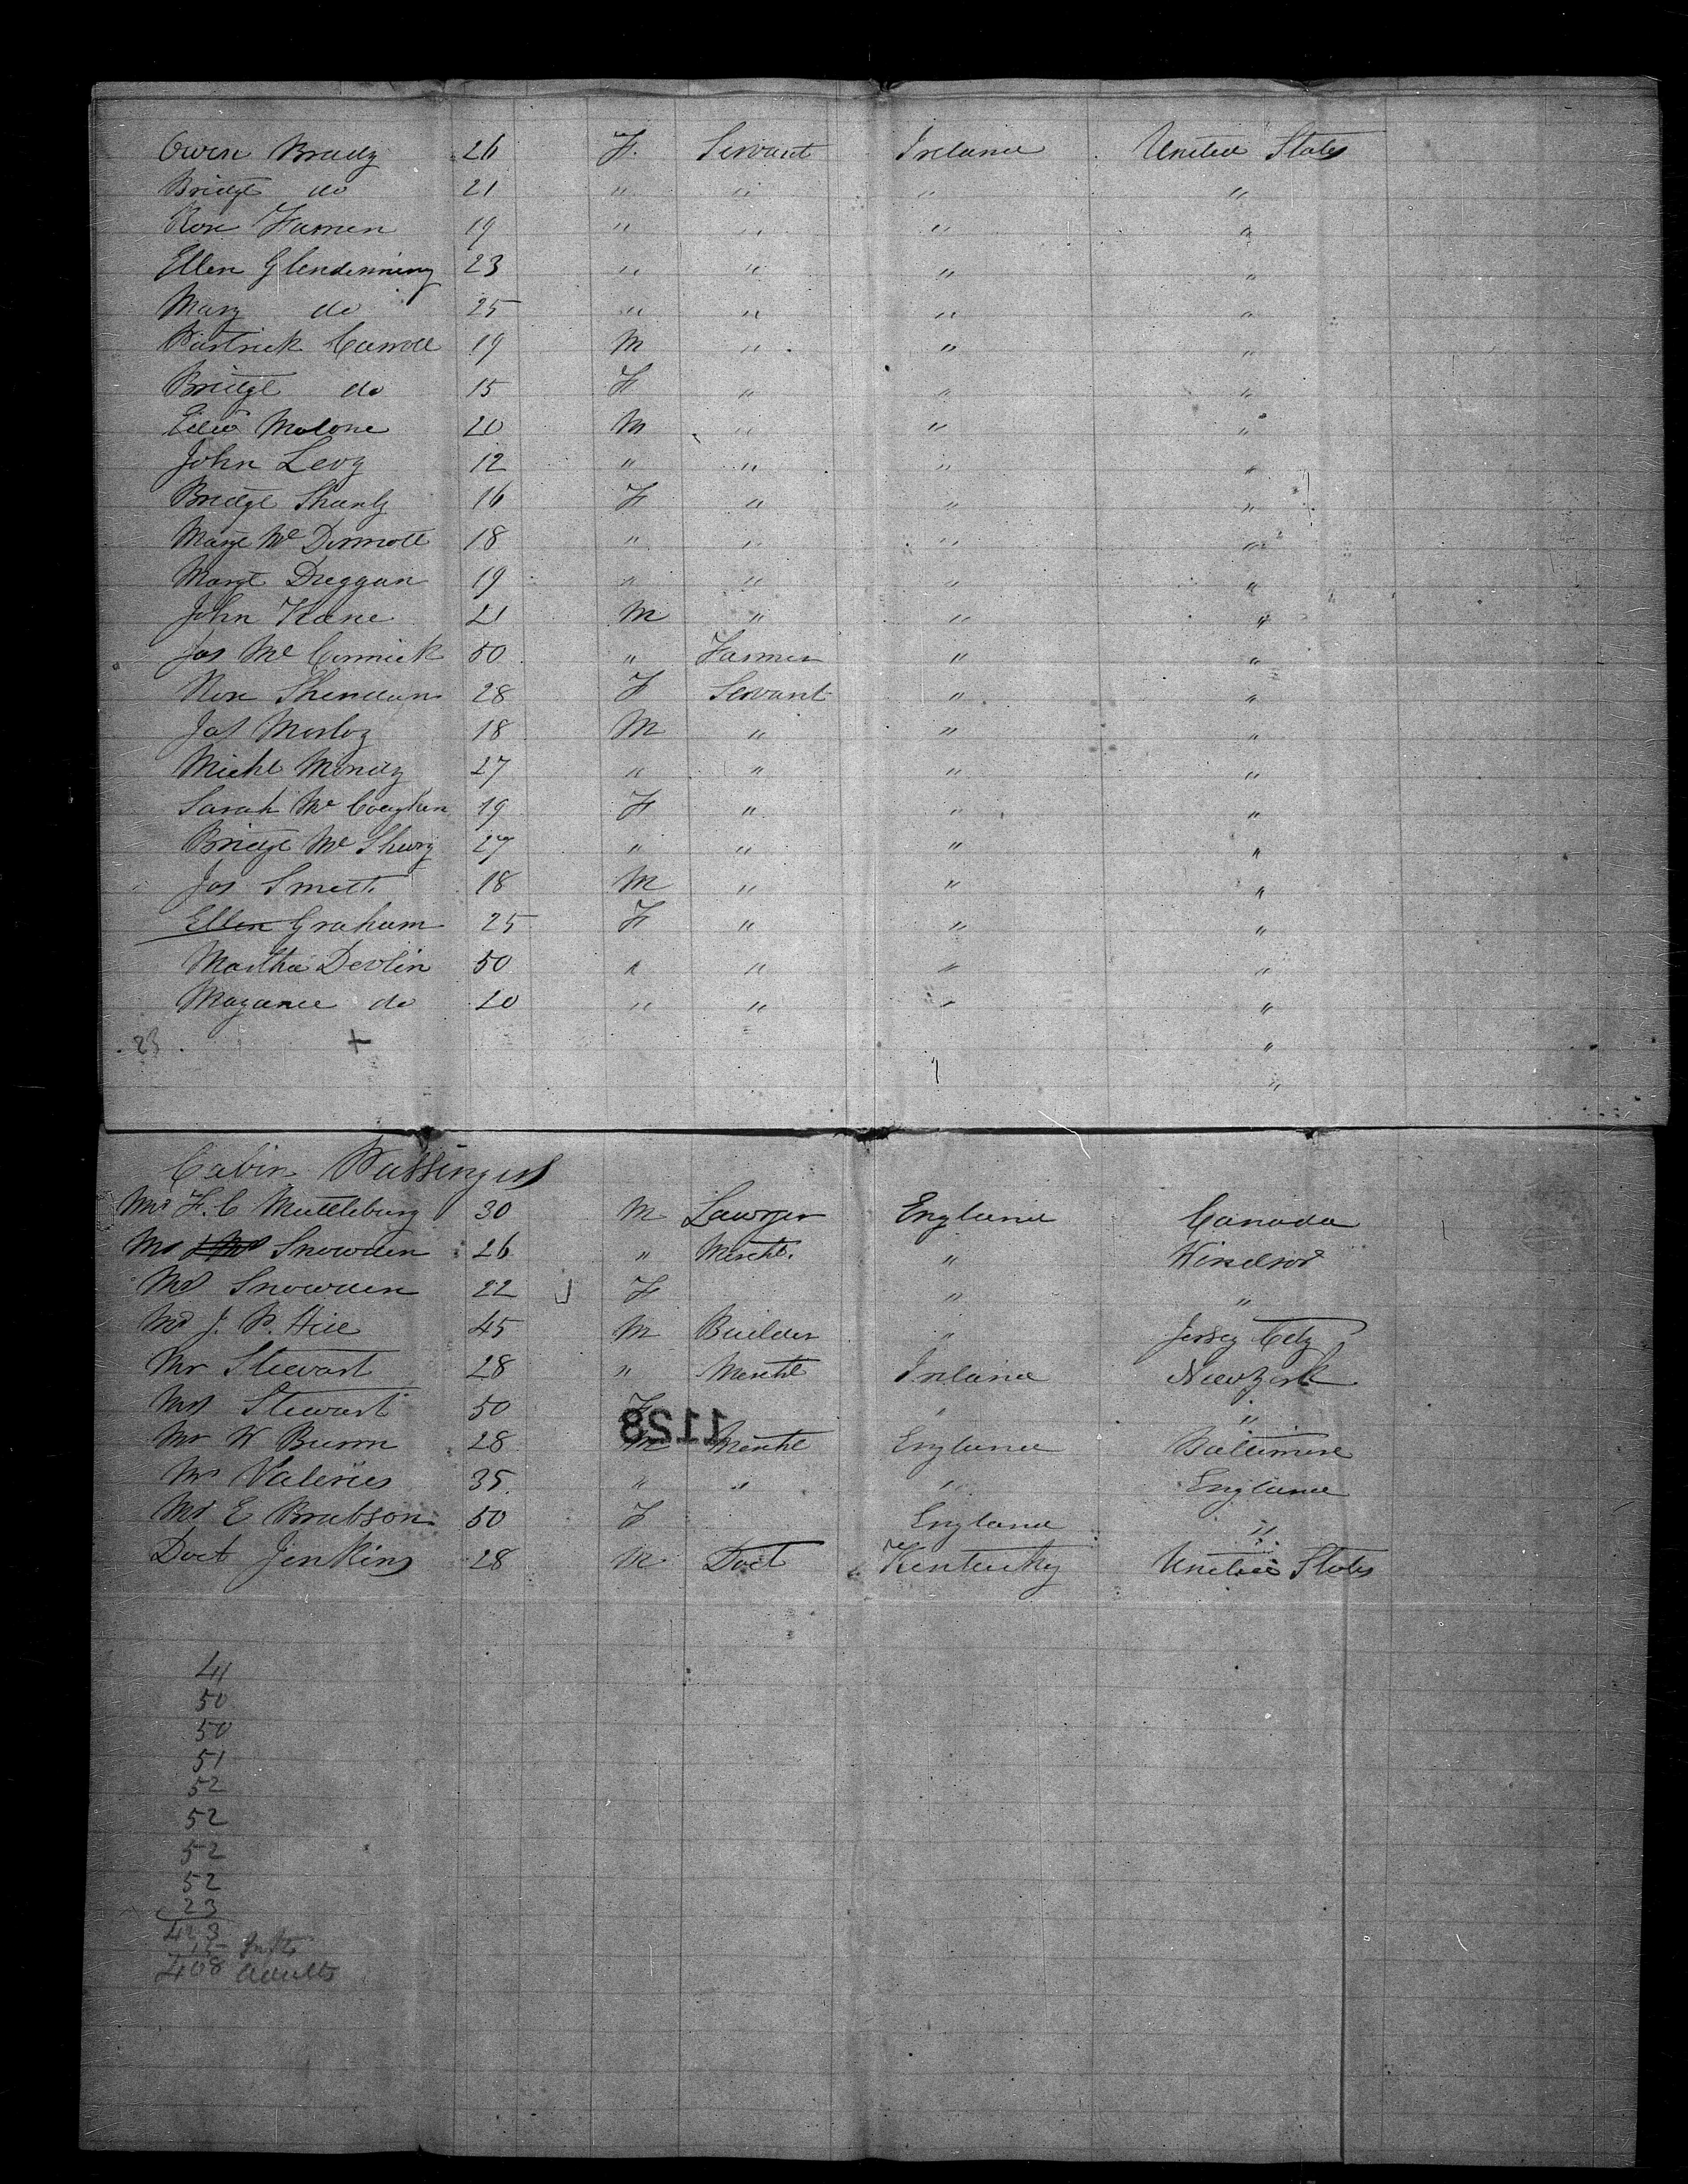 Owen Brady 26 F. Servant Ireland United States
Bridgt do 21 " " " "
Rose Farmen 19 " " " "
Ellen Glendenning 23 " " " "
Mary do 25 " " " "
Patrick Carroll 19 M " " "
Bridgt do 15 F " " "
Malone 20 M " " "
John Levy 12 " " " "
Bridgt 16 F " " "
Margt Mc Dermott 18 " " " "
Margt Dreggan 19 " " " "
John Kane 21 M " " "
Jas Mc Cormick 50 " Farmer " "
Rose Sheridan 28 F Servant " "
Jas 18 M " " "
Michl 27 " " " "
Sarah Mc 19 F " " "
Bridgt Mc 27 " " " "
Jas Smith 18 M " " "
Ellen Graham 25 F " " "
Martha Devlin 50 " " " "
do 20 " " " "
23 + "
"
Cabin Passingers
Mr F. C Muttlebury 30 M Lawyer England Canada
Mr Snowden 26 " Mercht. " Windsor
Mrs Snowden 22 F " "
Mr J. P. Hill 45 M Builder " Jersey City
Mr Stewart 28 " Mercht Ireland New York
Mrs Stewart 50 F " "
1128
Mr W Burn 28 M Mercht England Baltimore
Mr Valerius 35 " " " England
Mrs E Brabson 50 F England "
Doct Jenkins 28 M Doct Kentucky United States
41
50
50
51
52
52
52
52
23
423
15 Infts
408 adults